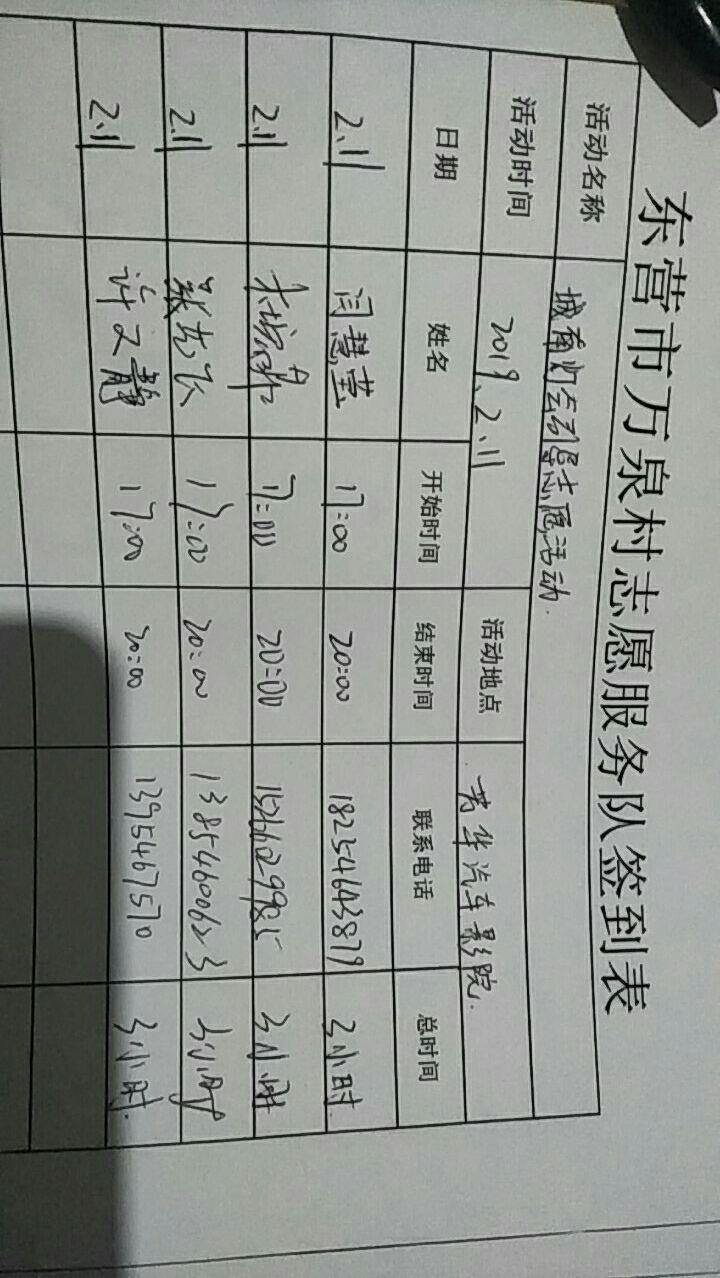 东营市万泉村志愿服务队签到表
活动名称 城南灯会引导志愿活动.
活动时间 2019.2.11 活动地点 芳华汽车影院.
日期 姓名 开始时间 结束时间 联系电话 总时间
2.11 闫慧莹 17:00 20:00 18254643879 3小时.
2.11 17:00 20:00 15266029985 3小时
2.11 17:00 20:00 13854600623 3小时
2.11 许文静 17:00 20:00 1395467570 3小时.